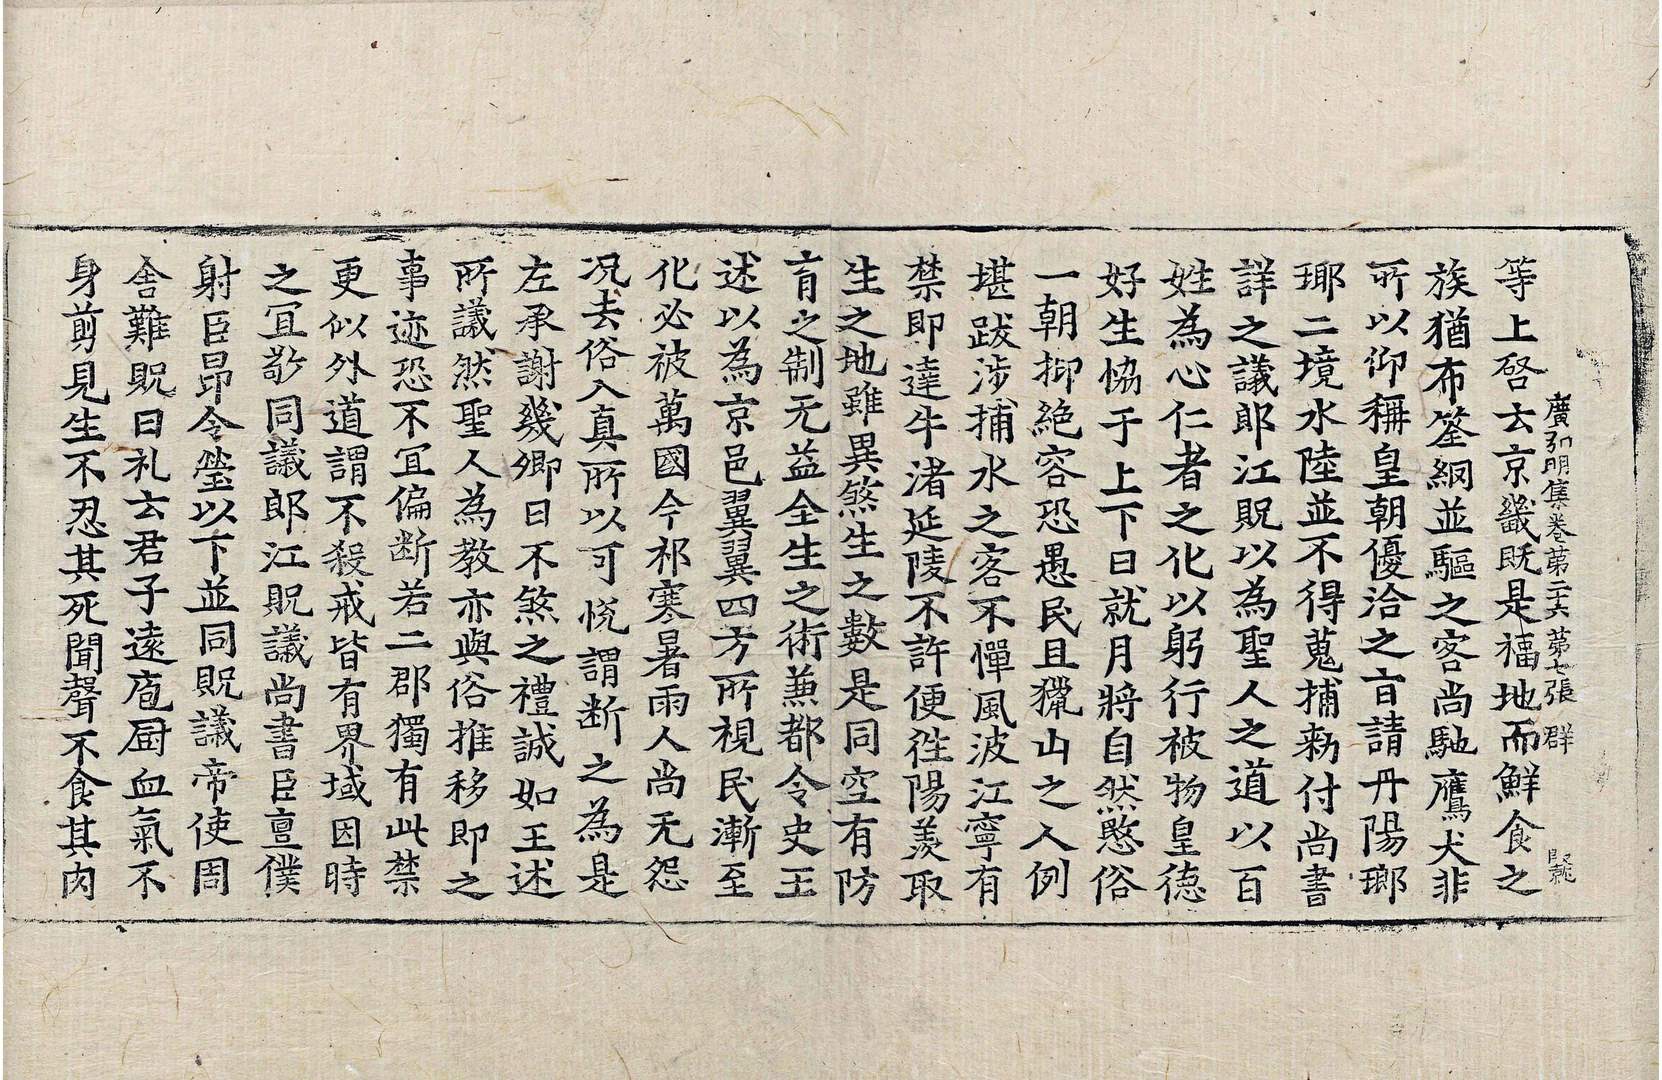 廣弘明集卷第二十六 第七張 群
等上啓云京畿既是福地而鮮食之
族猶布筌網並驅之客尚馳鷹犬非
所以仰稱皇朝優洽之旨請丹陽瑯
琊二境水陸並不得蒐捕勑付尚書
詳之議郎江貺以為聖人之道以百
姓為心仁者之化以躬行被物皇德
好生恊于上下日就月將自然愍俗
一朝抑絶容恐愚民且獵山之人例
堪跋涉捕水之客不憚風波江寧有
禁即達牛渚延陵不許便徃陽羨取
生之地雖異煞生之數是同空有防
育之制无益全生之術兼都令史王
述以為京邑翼翼四方所視民漸至
化必被萬國今祁寒暑雨人尚无怨
况去俗入真所以可恱謂断之為是
左承謝幾卿曰不煞之禮誠如王述
所議然聖人為教亦與俗推移即之
事迹恐不冝偏断若二郡獨有此禁
更似外道謂不殺戒皆有界域因時
之冝敬同議郎江貺議尚書臣亶僕
射臣昂令瑩以下並同貺議帝使周
舍難貺曰礼云君子遠庖厨血氣不
身剪見生不忍其死聞聲不食其肉